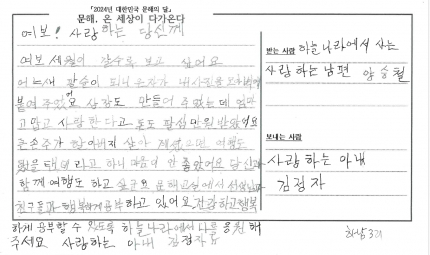 「2024년 대한민국 문해의 달」
문해, 온 세상이 다가온다
여보! 사랑하는 당신께
여보 세월이 갈수록 보고 싶어요
어느새 팔순이 되니 손자가 내 사진을
붙여 주었고 상장도 만들어 주었는데
고맙고 사랑한다고 돈도 팔십만원 받았어요
큰손주가 할아버지 살아 계셨으면 여행도
했을 텐데 라고 하니 마음이 안 좋았어요 당신과
함께 여행도 하고 싶군요 문해교실에서 선생님과
친구들과 행복하게 공부하고 있어요 건강하고 행복
하게 공부할 수 있도록 하늘나라에서 나를 응원해
주세요 사랑하는 아내 김정자
받는 사람 하늘나라에서 사는
사랑하는 남편 양승철
보내는 사람
사랑하는 아내
김정자